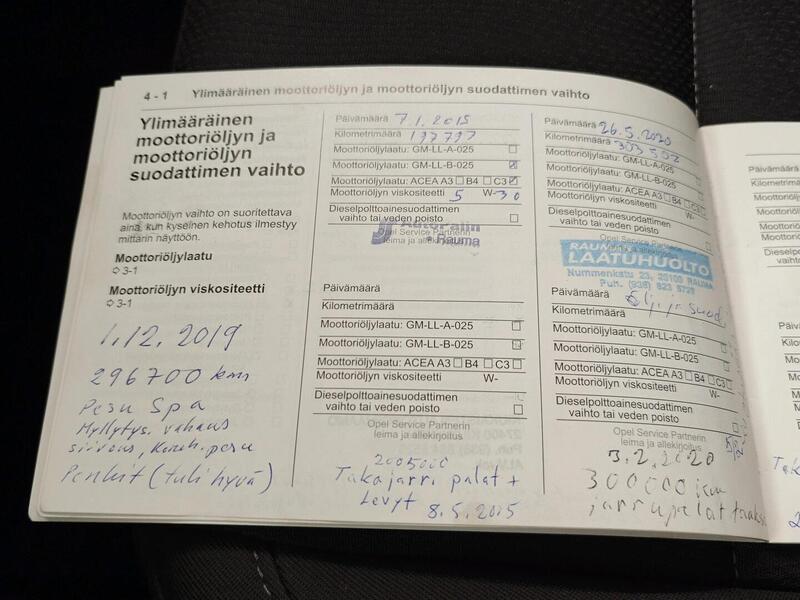 4 - 1 Ylimääräinen moottoriöljyn ja moottoriöljyn suodattimen vaihto
Ylimääräinen
moottoriöljyn ja
moottoriöljyn
suodattimen vaihto
Moottoriöljyn vaihto on suoritettava
aina, kun kyseinen kehotus ilmestyy
mittarin näyttöön.
Moottoriöljylaatu
3-1
Moottoriöljyn viskositeetti
3-1
1.12.2019
296700 km
Pesu Spa
Myllytys. vahaus
siivous, Koneh. pesu
Penkit (tuli hyvä)
Päivämäärä 7.1.2015
Kilometrimäärä 197797
Moottoriöljylaatu: GM-LL-A-025
Moottoriöljylaatu: GM-LL-B-025
Moottoriöljylaatu: ACEA A3 B4 C3
Moottoriöljyn viskositeetti 5 W-30
Dieselpolttoainesuodattimen
vaihto tai veden poisto
Opel Service Partnerin
leima ja allekirjoitus
Rauma
Päivämäärä
Kilometrimäärä
Moottoriöljylaatu: GM-LL-A-025
Moottoriöljylaatu: GM-LL-B-025
Moottoriöljylaatu: ACEA A3 B4 C3
Moottoriöljyn viskositeetti W-
Dieselpolttoainesuodattimen
vaihto tai veden poisto
Opel Service Partnerin
leima ja allekirjoitus
2005000
Takajarri palat +
Levyt 8.5.2015
Päivämäärä 26.5.2020
Kilometrimäärä 303502
Moottoriöljylaatu: GM-LL-A-025
Moottoriöljylaatu: GM-LL-B-025
Moottoriöljylaatu: ACEA A3 B4 C3
Moottoriöljyn viskositeetti W-
Dieselpolttoainesuodattimen
vaihto tai veden poisto
Opel Service Partnerin
leima ja allekirjoitus
LAATUHUOLTO
Nummenkatu 23, 26100 RAUMA
Puh. (938) 823 5729
Päivämäärä Öljy ja suod.
Kilometrimäärä
Moottoriöljylaatu: GM-LL-A-025
Moottoriöljylaatu: GM-LL-B-025
Moottoriöljylaatu: ACEA A3 B4 C3
Moottoriöljyn viskositeetti W-
Dieselpolttoainesuodattimen
vaihto tai veden poisto
Opel Service Partnerin
leima ja allekirjoitus
3.2.2020
300000 km
jarrupalat
Päivämäärä